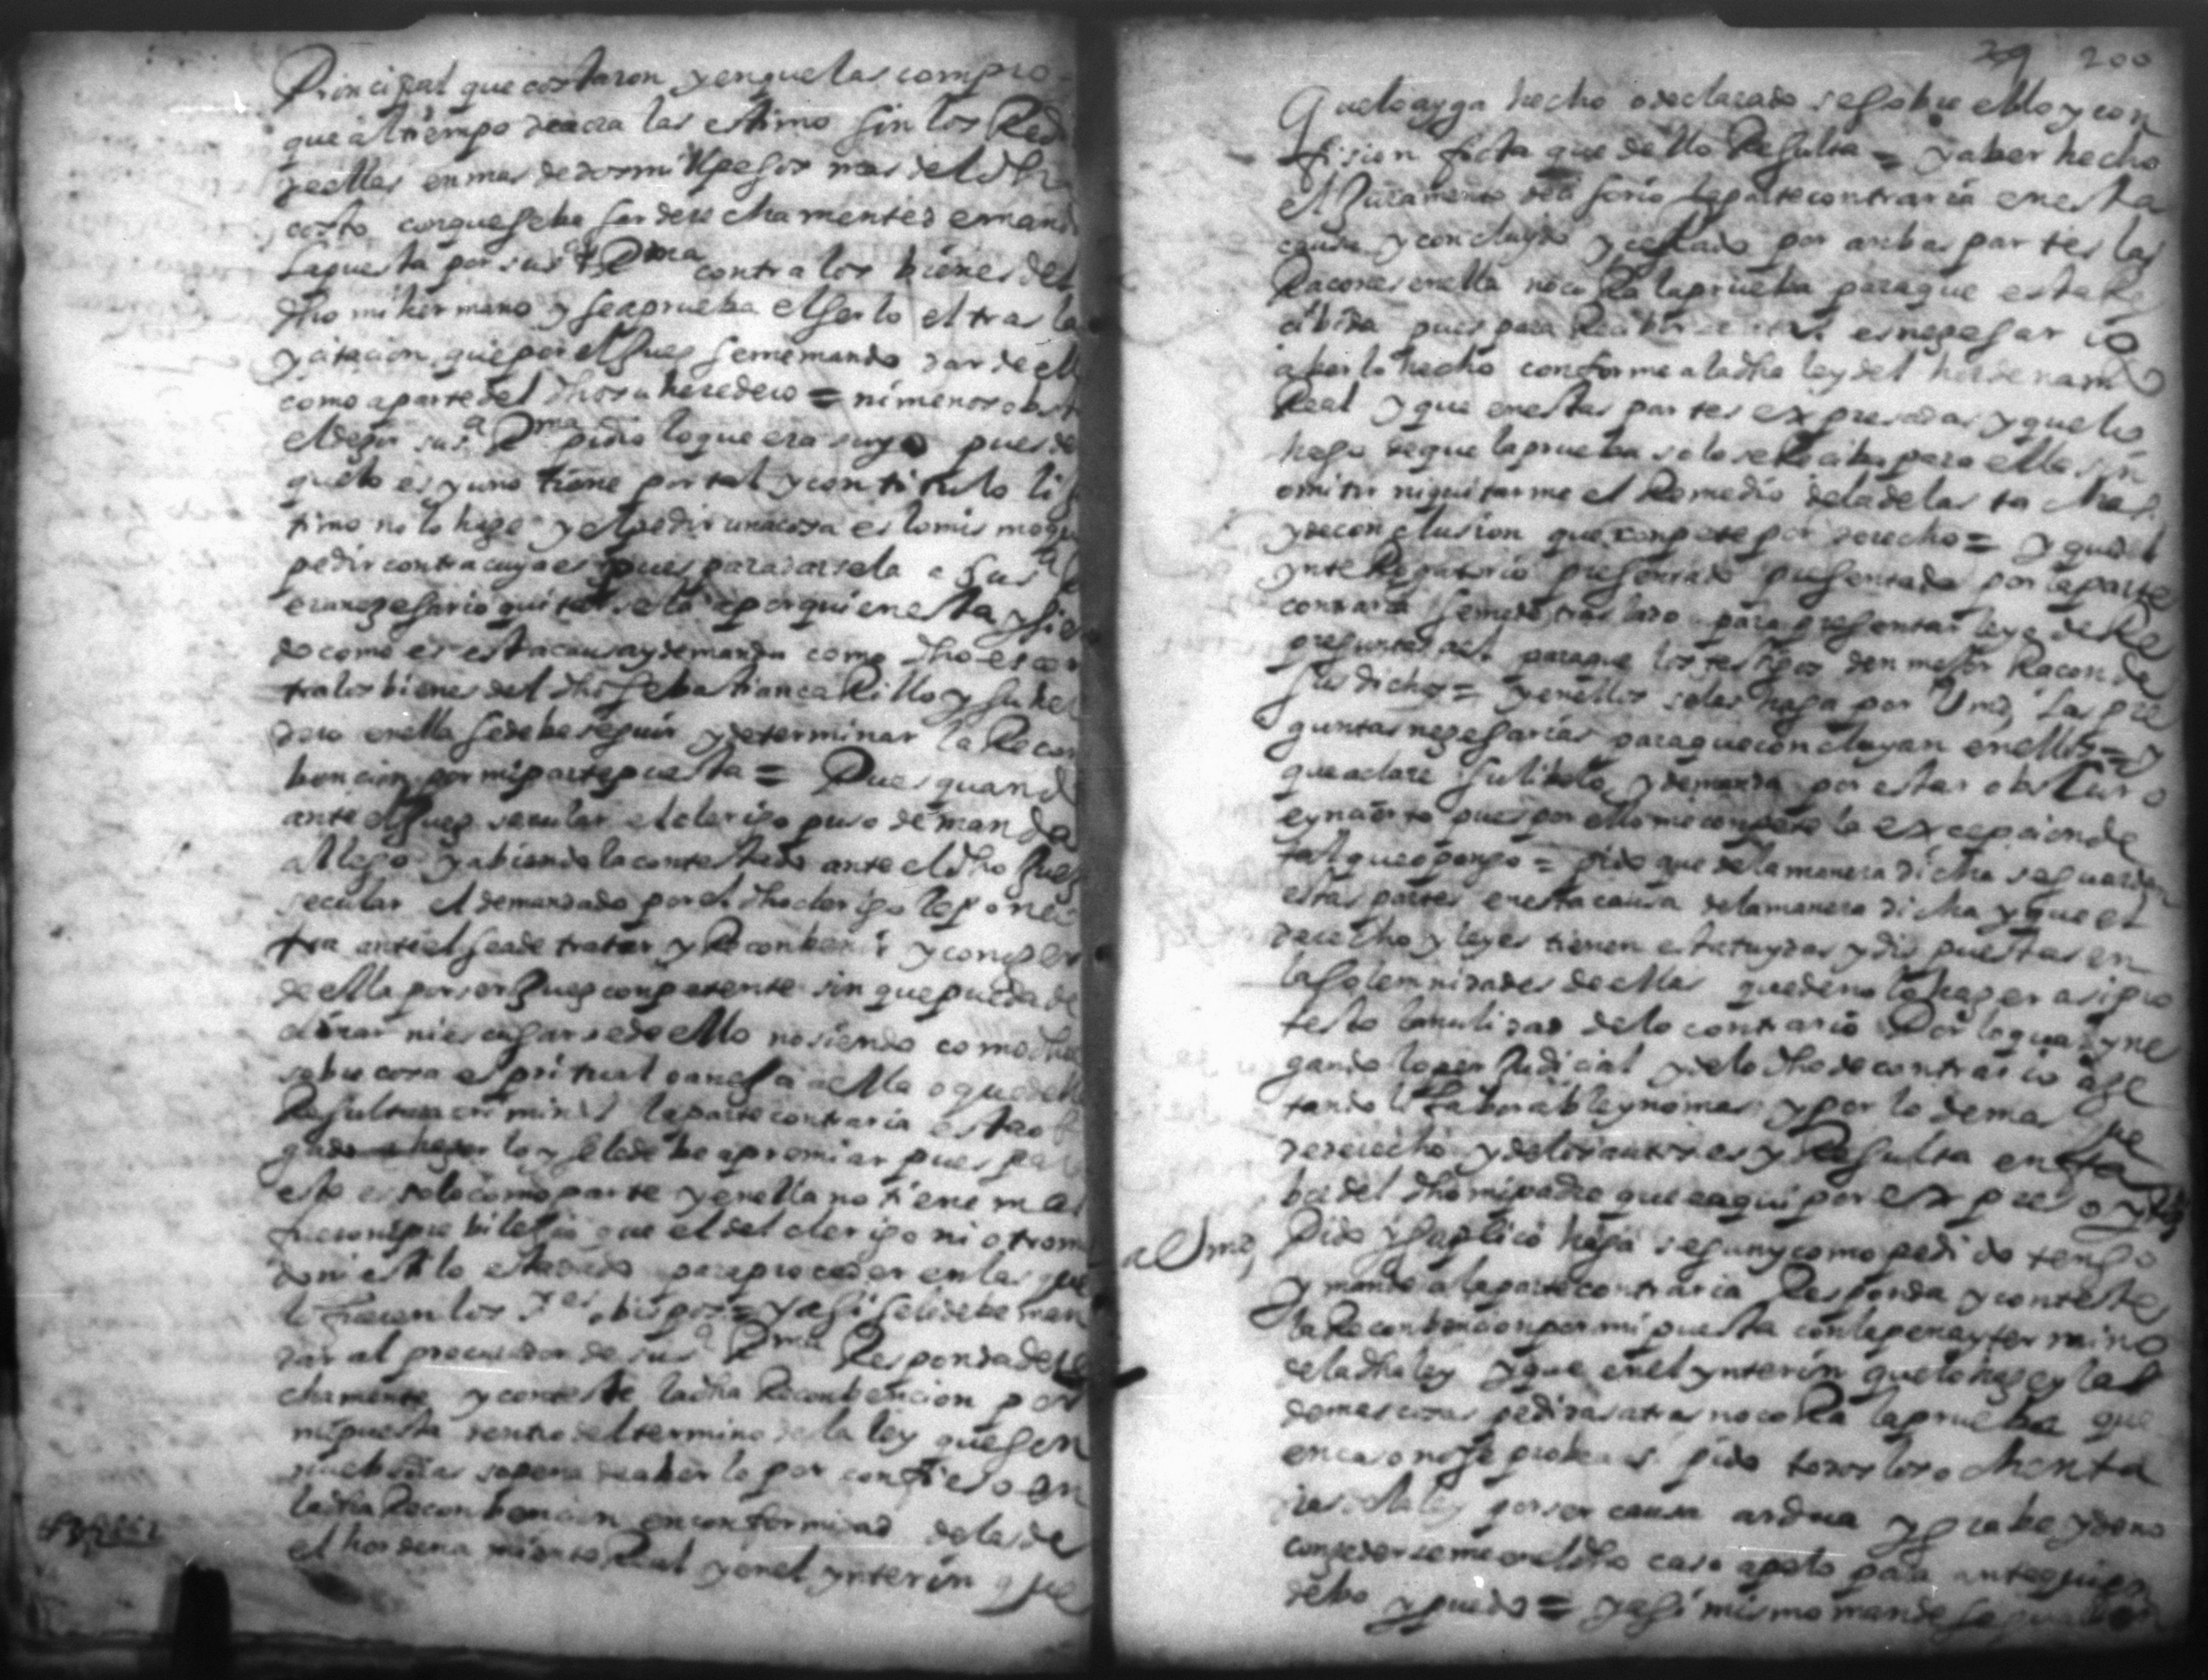 Principal que costaron y en que las compro
que al tiempo de aora las estimo sin los Red
y ellas en mas de dos mill pesos mas del dho
costo con que se ha
puesta por su sª Rma contra los bienes del
dho mi hermano y se aprueba el ser lo el tras la
y citacion que por el Juez se me mando dar de ella
como a parte del dho su heredero = ni menos obst
el dezir su sª Rma pidio lo que era suyo pues de
quello es y uno tiene por tal y con titulo lix
timo no lo haze y el pedir una cosa es lo mismo q
pedir contra cuya es pues para darsela a su sª
era nezesario quitarsela a por quien esta y sien
do como es esta causa y demanda como dho es con
tra los bienes del dho Sebastian caRillo y su he
dero en ella se debe seguir y determinar la Recon
bencion por mi parte puesta = Pues quando
ante el Juez secular el clerigo puso demanda
al lego y abiendo la contestado ante el dho Juez
secular el demandado por el dho clerigo le pone o
tra ante el se a de tratar y Reconbenir y conozer
de ella por ser Juez conpetente sin que pueda de
clinar ni escusarse de ello no siendo como dho
sobre cosa espiritual o anexa a ella o que della
Resultara criminal la parte contraria esta ob
gado a hazer lo y se le debe apremiar pues pa
esto es solo como parte y en ella no tiene mas
fuero ni previlegio que el del clerigo ni otro mo
do ni estilo para proceder en las que
le tocan los Sres obispos = y asi se le debe man
dar al procurador de su sª Rma Responda dere
chamente y conteste la dha Reconbencion por
mi puesta dentro del termino de la ley que son
nuebe dias so pena de aberlo por confieso en
la dha Reconbencion en conformidad de la de
el hordenamiento Real y en el ynterin que
29 200
Que lo ayga hecho o declarado se sobre ello y con
fision ficta que dello Resulta = y aber hecho
el Juramento de la parte contraria en esta
causa y concluydo y por anbas partes las
Racones en ella no coRa la prueba para que esta Re
cibida pues para Recibir es nezesario
aberlo hecho conforme a la dha ley del hordenam
Real y que en estas partes expresadas y que lo
hago de que la prueba solo se Reciba para ella sin
omitir ni quitarme el Remedio de la de las tachas
y de conclusion que conpete por derecho = y que el
ynteRogatorio presentado presentado por la parte
contraria se me de traslado para presentar leyes de Re
preguntas a el para que los testigos den mejor Racon de
sus dichos = y en ellos se les haga por Vmd las pre
guntas nezesarias para que concluyan en ellos = y
que aclare su libelo y demanda por estar obscuro
e yncierto pues por ello me conpete la excepcion de
tal que opongo = pido que de la manera dicha se guarden
estas partes en esta causa de la manera dicha y que el
derecho y leyes tienen estatuydas y dispuestas en
la solemnidades de ellas que de no lo hazer asi pro
testo la nulidad de lo contrario Por lo qual y ne
gando lo perjudicial y de lo dho de contrario aze
tando lo faborable y no mas y por lo demas que
de derecho y de los autores y Resulta en fa
bor del dho mi padre que e aqui por expreso
a Vmd Pido y suplico haga segun y como pedido tengo
y mande a la parte contraria Responda y conteste
la Reconbencion por mi puesta con la pena y termino
de la dha ley y que en el ynterin que lo haze y las
demas cosas pedidas atras no coRa la prueba que
en caso no se probea pido todos los ochenta
dias de la ley por ser causa ardua y grabe y de no
conzederseme en el dho caso apelo para ante quien
debo y puedo = y asi mismo mande se